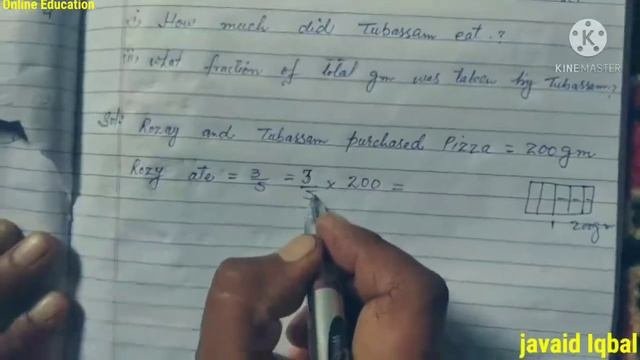 Online Education
i) How much did Tubassam eat.?
ii) what fraction of total gm was taken by Tubassam?
KINEMASTER
Sol: Rozay and Tubassam purchased Pizza = 200gm
Rozy ate = 3/5 = 3/5 × 200 =
200gm
javaid Iqbal